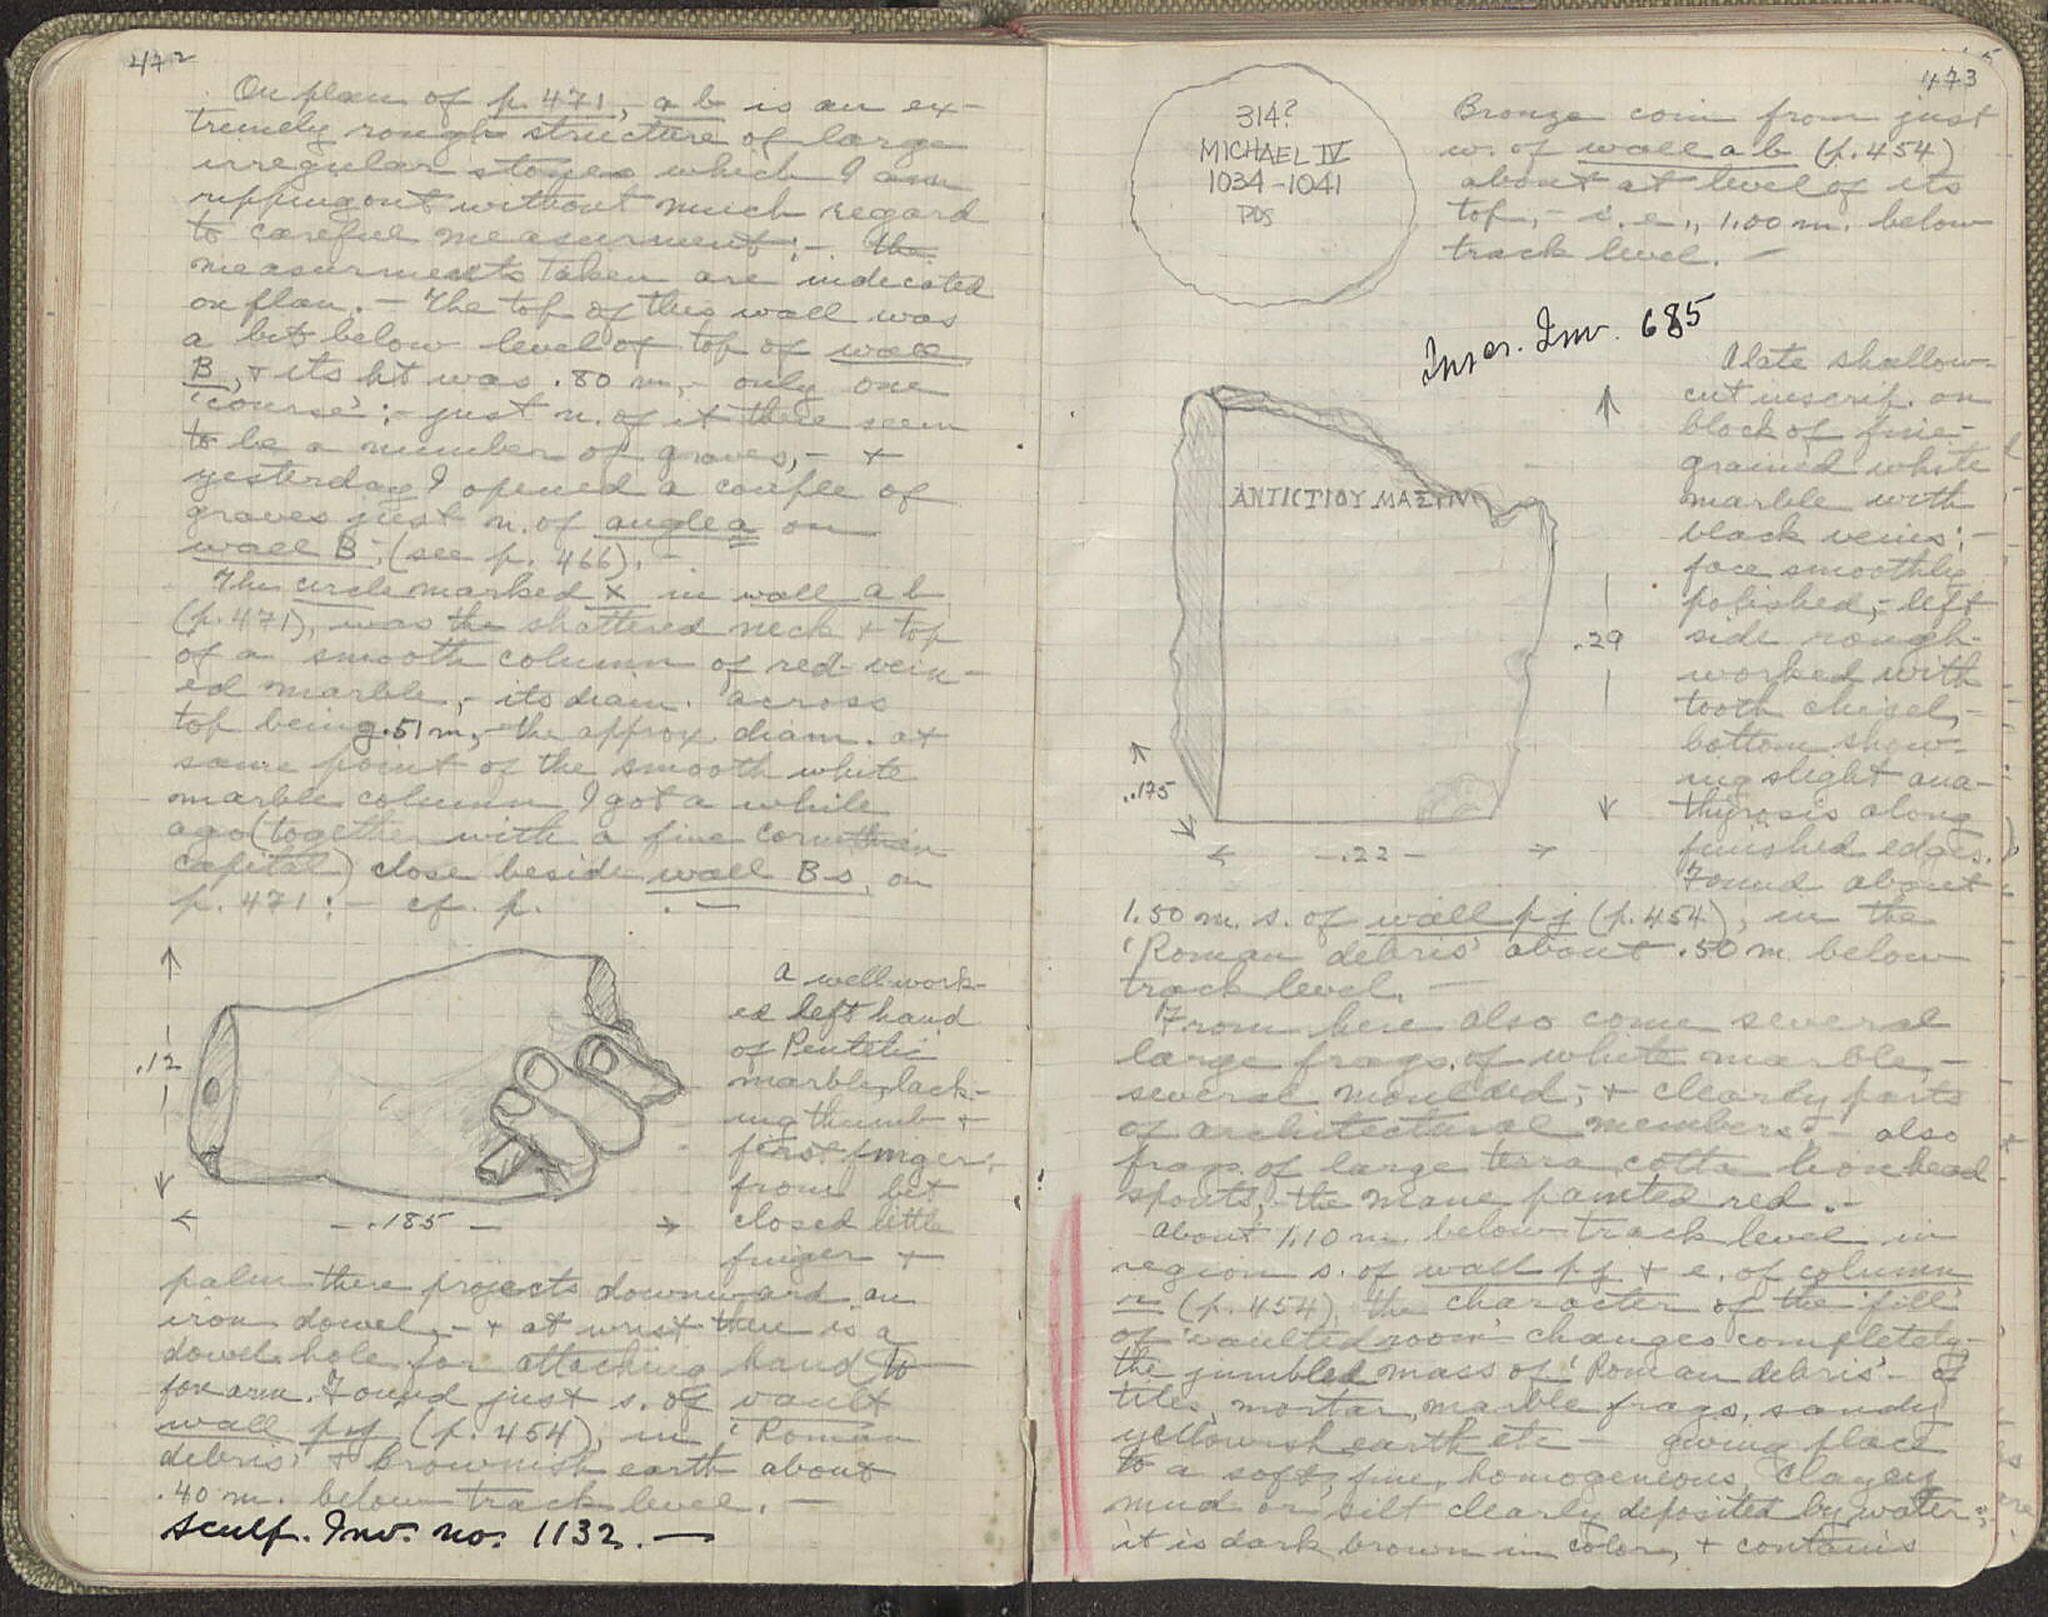 472
On plan of p. 471, a b is an ex-
tremely rough structure of large
irregular stones which I am
ripping out without much regard
to careful measurment:- the
measurments taken are indicated
on plan. - The top of this wall was
a bit below level of top of wall
B, + its ht was .80 m,- only one
'course':- just n. of it there seem
to be a number of graves,- +
yesterday I opened a couple of
graves just n. of angle a on
wall B (see p. 466). -
The circle marked X in wall a b
(p. 471), was the shattered neck + top
of a smooth column of red-vein-
ed marble,- its diam. across
top being .51 m,- the approx. diam. at
same point of the smooth white
marble column I got a while
ago (together with a fine corinthian
capital) close beside wall B s, on
p. 471:- cf. p. . -
.12
.185
A well-work-
ed left hand
of Pentelic
marble, lack-
ing thumb +
first finger,-
from bet
closed little
finger +
palm there projects downward an
iron dowel,- + at wrist there is a
dowel hole for attaching hand to
forarm. Found just s. of vault
wall pj (p. 454), in 'Roman
debris' + brownish earth about
.40 m. below track level. -
Sculp. Inv. no. 1132. -
473
314?
MICHAEL IV
1034-1041
PDS
Bronze coin from just
w. of wall a b (p. 454)
about at level of its
top,- i.e., 1.00 m. below
track level. -
Inscr. Inv. 685
ΑΝΤΙCΤΙΟΥ ΜΑΞΙΜ
.29
.175
.22
A late shallow-
cut inscrip. on
block of fine-
grained white
marble with
black veins;-
face smoothly
polished,- left
side rough-
worked with
tooth chisel,-
bottom show-
ing slight ana-
thyrosis along
finished edges.
Found about
1.50 m. s. of wall p j (p. 454), in the
'Roman debris' about .50 m. below
track level. -
From here also come several
large frags. of white marble,-
several moulded,- + clearly parts
of architectural members:- also
frags. of large terra cotta lion head
spouts,- the mane painted red.-
About 1.10 m. below track level in
region s. of wall p j + e. of column
n (p. 454), the character of the 'fill'
of 'vaulted room' changes completely-
the jumbled mass of 'Roman debris' - of
tiles, mortar, marble frags, sandy
yellowish earth etc - giving place
to a soft, fine, homogeneous, clayey
mud or silt clearly deposited by water;-
it is dark brown in color, + contains